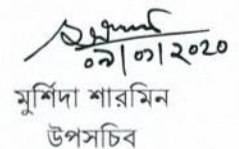 ০৯|০১|২০২০
মুর্শিদা শারমিন
উপসচিব